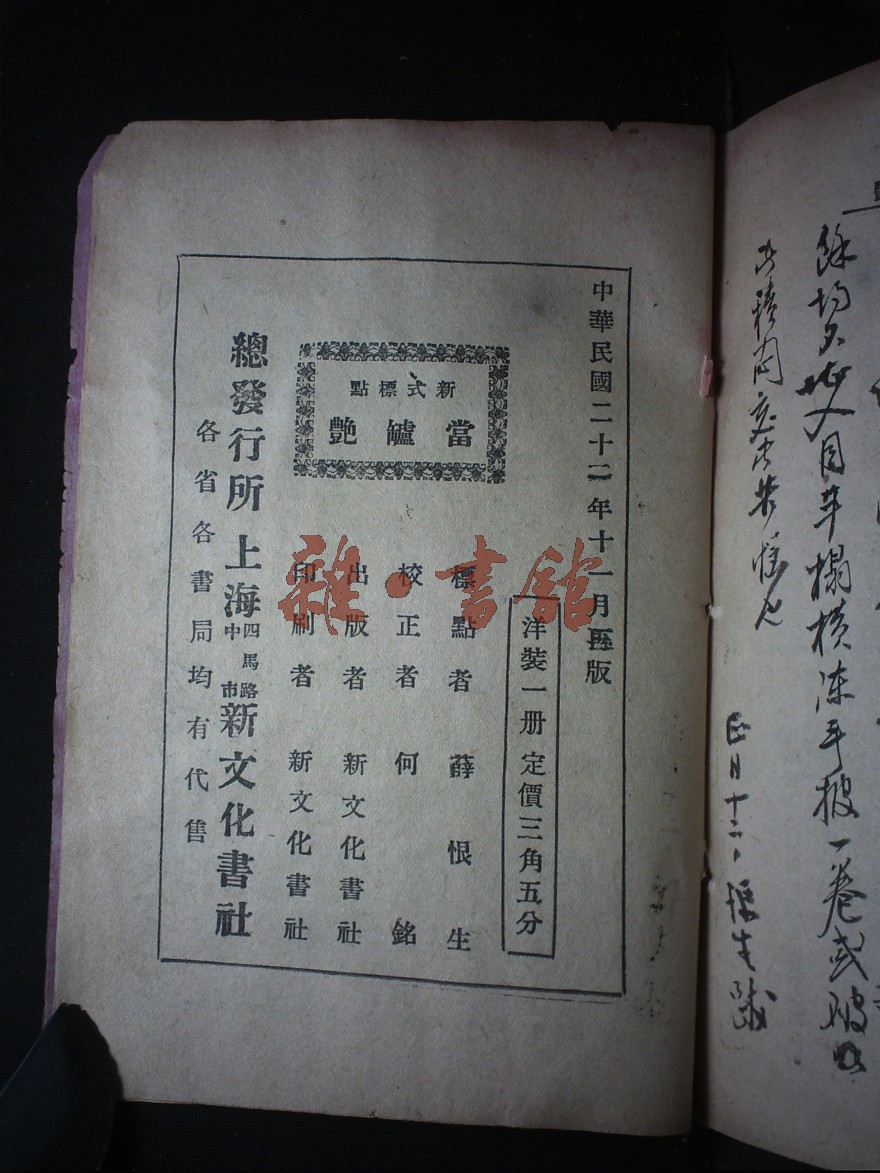 餘均不
目羊榻橫陳手披一卷或
正月十二
中華民國二十二年十一月再版
洋裝一册 定價三角五分
新式標點
當罏艷
標點者 薛恨生
校正者 何銘
出版者 新文化書社
印刷者 新文化書社
總發行所 上海四馬路中市新文化書社
各省各書局均有代售
雜·書館